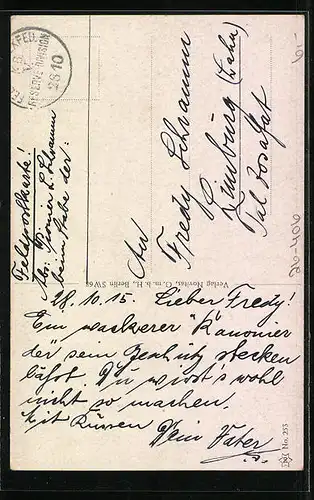 Feldpostkarte!
Abs: Pionier L. Schramm
beim Stabe der:
K.B.
RESERVE-DIVISION
28 10
An
Fredy Schramm
Limburg (Lahn)
Tal Josafat
26-406
Verlag Novitas, G. m. b. H., Berlin SW 68
28.10.15. Lieber Fredy!
Ein wackerer "Kanonier
der sein Geschütz stecken
läßt. Du wirst's wohl
nicht so machen.
Mit Küssen
Dein Vater
No. 253